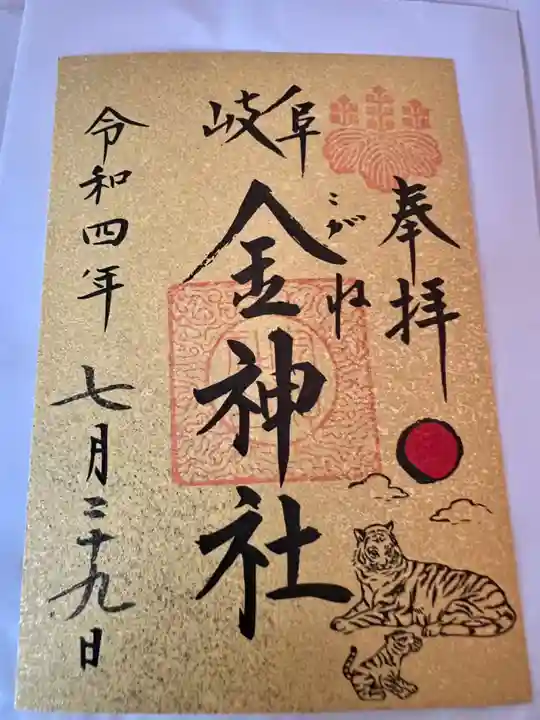 奉拝
岐阜
こがね
金神社
令和四年
七月二十九日